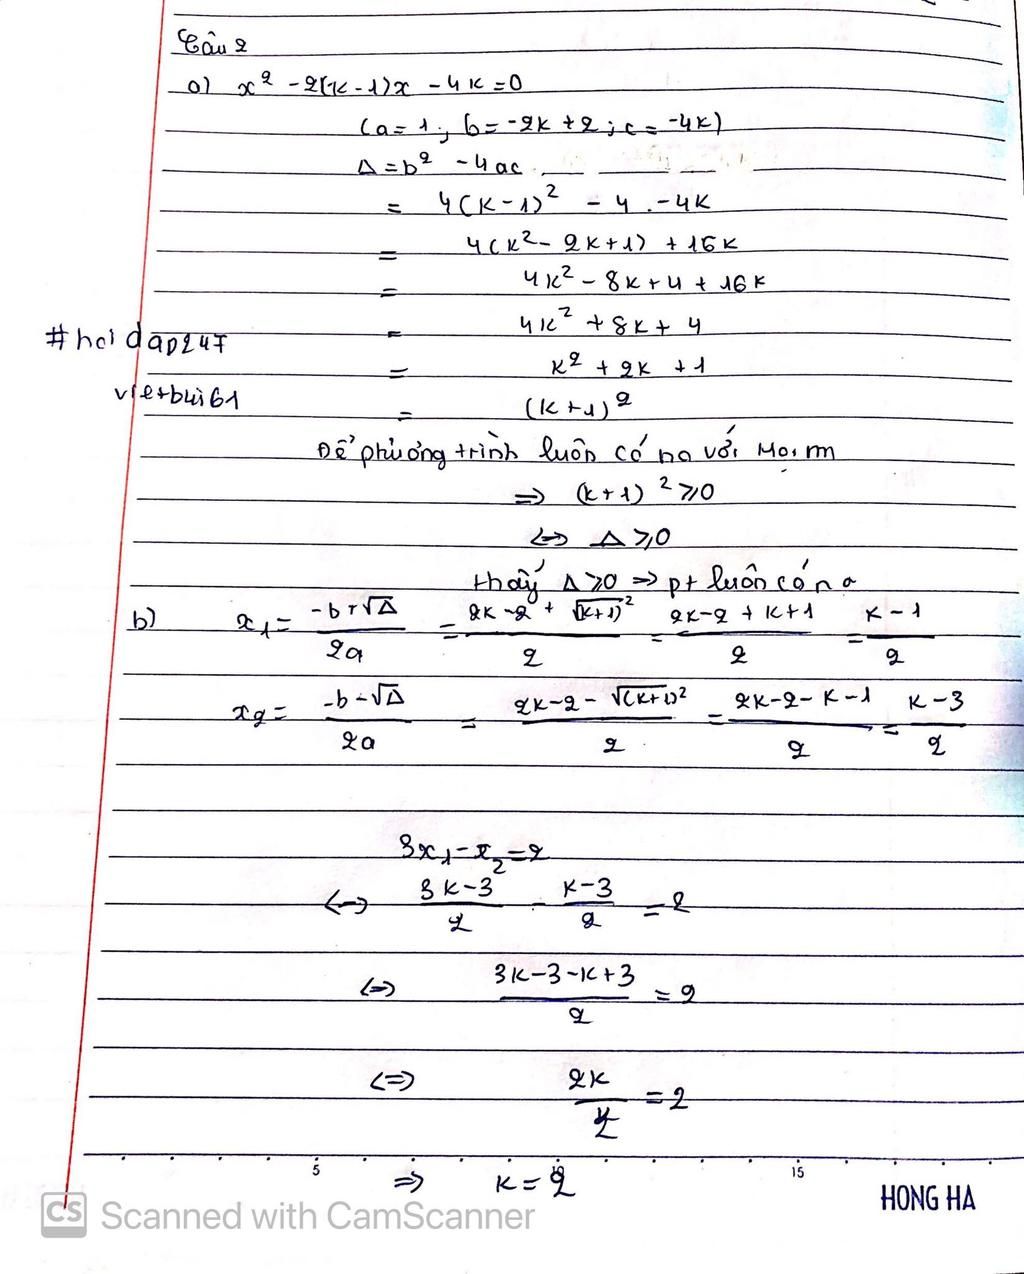 Câu 2
a) x² - 2(k-1)x - 4k = 0
(a = 1 ; b = -2k + 2 ; c = -4k)
Δ = b² - 4ac
= 4(k-1)² - 4 . -4k
= 4(k² - 2k + 1) + 16k
= 4k² - 8k + 4 + 16k
= 4k² + 8k + 4
#hoidap247
= k² + 2k + 1
vietbui61
= (k+1)²
Để phương trình luôn có no với mọi m
=> (k+1)² ≥ 0
<=> Δ ≥ 0
thấy Δ ≥ 0 => pt luôn có no
b) x₁ = (-b + √Δ)/2a = (2k - 2 + √(k+1)²)/2 = (2k - 2 + k + 1)/2 = (k - 1)/2
x₂ = (-b - √Δ)/2a = (2k - 2 - √(k+1)²)/2 = (2k - 2 - k - 1)/2 = (k - 3)/2
3x₁ - x₂ = 2
<=> (3k - 3)/2 - (k - 3)/2 = 2
<=> (3k - 3 - k + 3)/2 = 2
<=> 2k/2 = 2
5 10 15
=> k = 2
HONG HA
CS Scanned with CamScanner